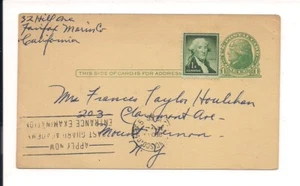 32 Hill Ave
Fairfax Marin Co
California
THIS SIDE OF CARD IS FOR ADDRESS
Mrs Frances Taylor Houlihan
203 Claremont Ave
Mount Vernon
N.Y
APPLY NOW
COAST GUARD ACADEMY
ENTRANCE EXAMINATION